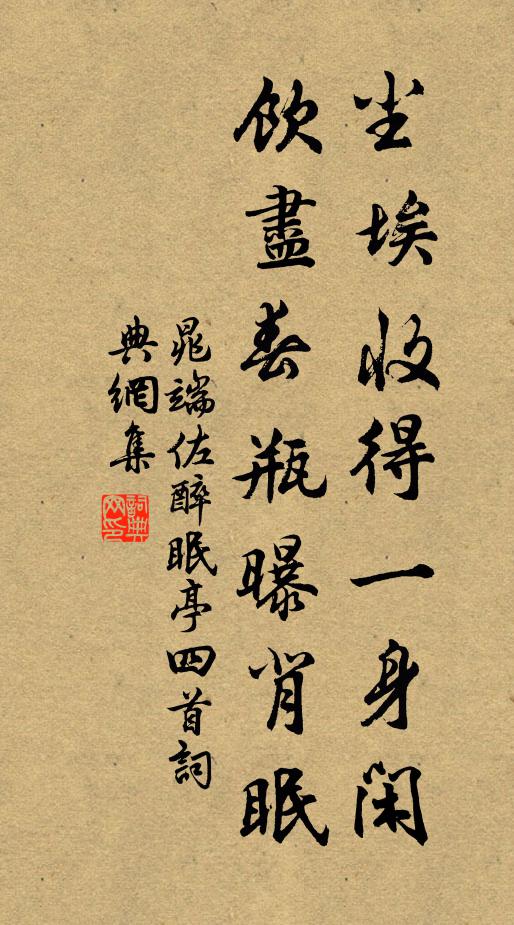 尘埃收得一身闲
飲盡春瓶曝背眠
晁端佐醉眠亭四首詞
典網集
詞典网印